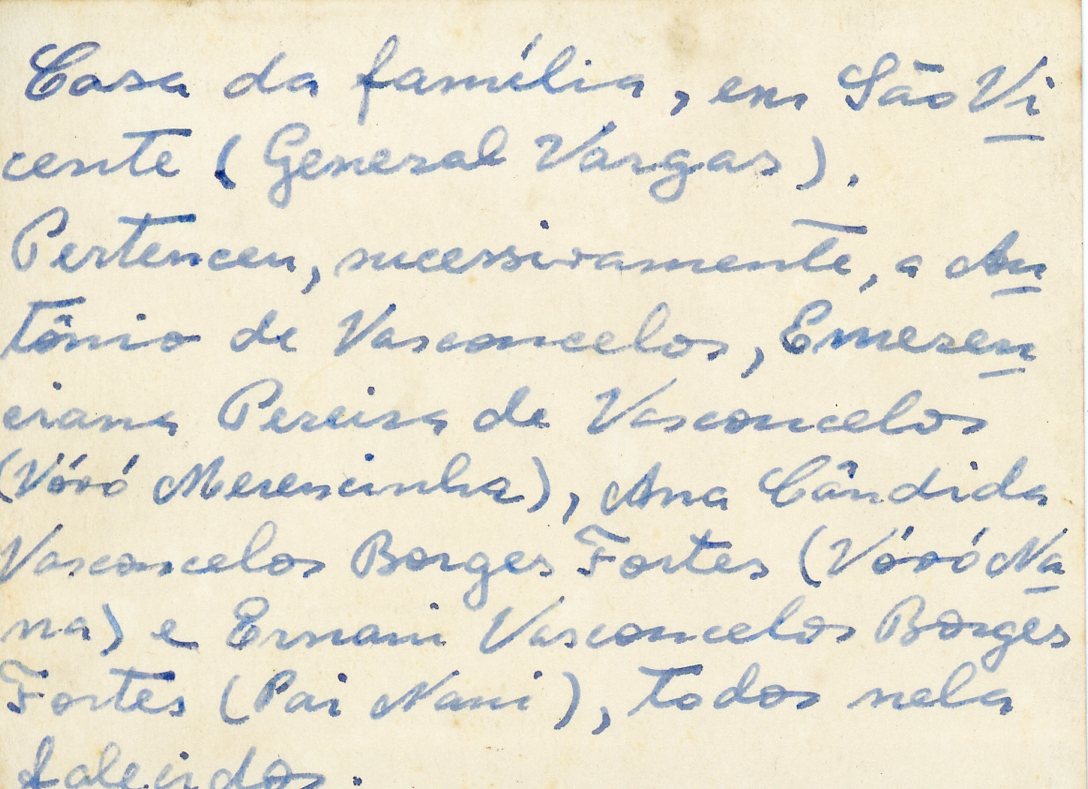 Casa da família, em São Vi
cente (General Vargas).
Pertenceu, sucessivamente, a An
tônio de Vasconcelos, Emeren
ciana Pereira de Vasconcelos
(Vóvó Merencinha), Ana Cândida
Vasconcelos Borges Fortes (Vóvó Na
na) e Ernani Vasconcelos Borges
Fortes (Pai Nani), todos nela
falecidos.